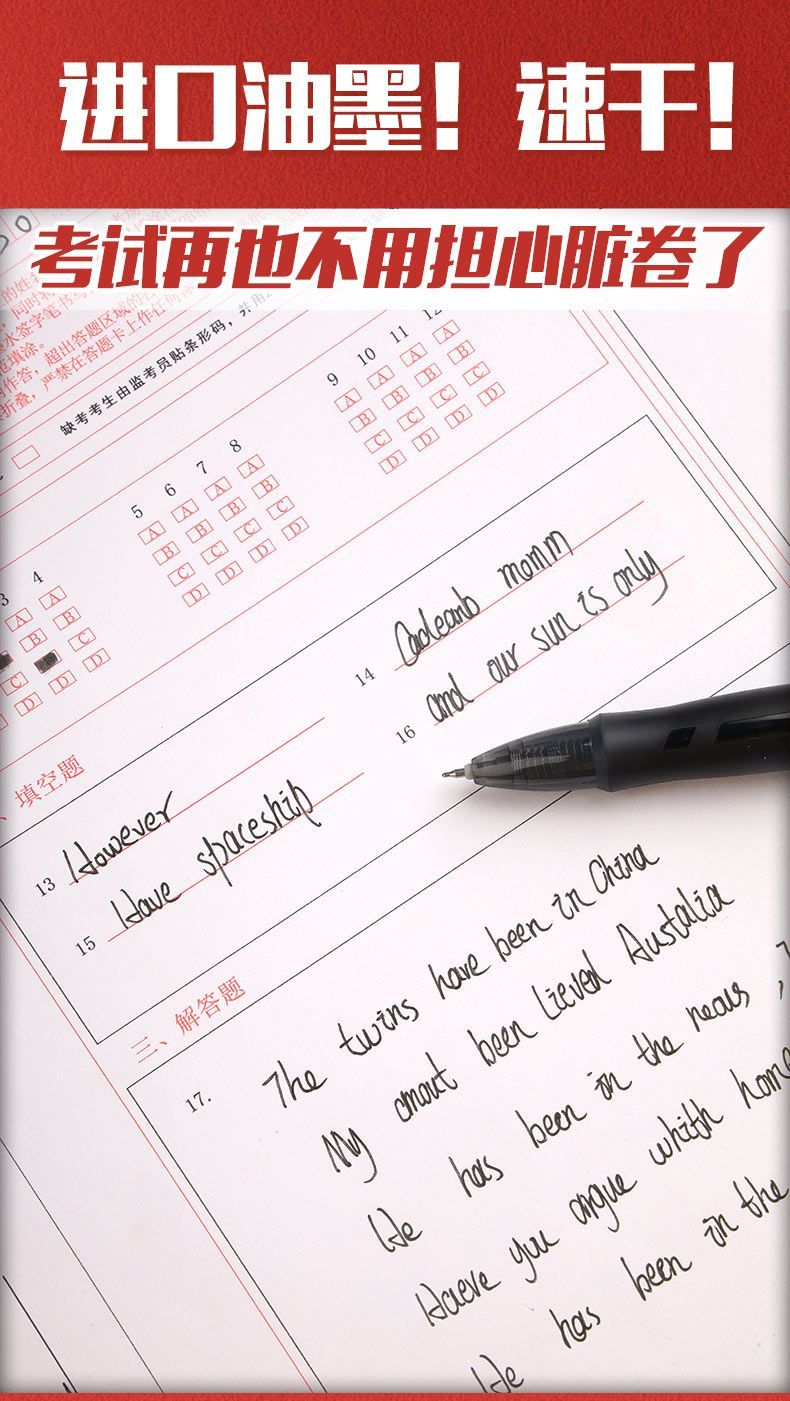 进口油墨！速干！
考试再也不用担心脏卷了
缺考考生由监考员贴条形码，并用
超出答题区域的答
严禁在答题卡上作任何
3 4
A A
B B
C
D D D
5 6 7 8
A A A A
B B B B
C C C C
D D D D
9 10 11 12
A A A A
B B B B
C C C C
D D D D
填空题
13 However
14 Cadeamb momm
15 Have spaceship
16 and our sun is only
三、解答题
17. The twins have been in China
My amout been Lieved Austalia
He has been in the neous ,
Haeve you angue whith home
He has been in the